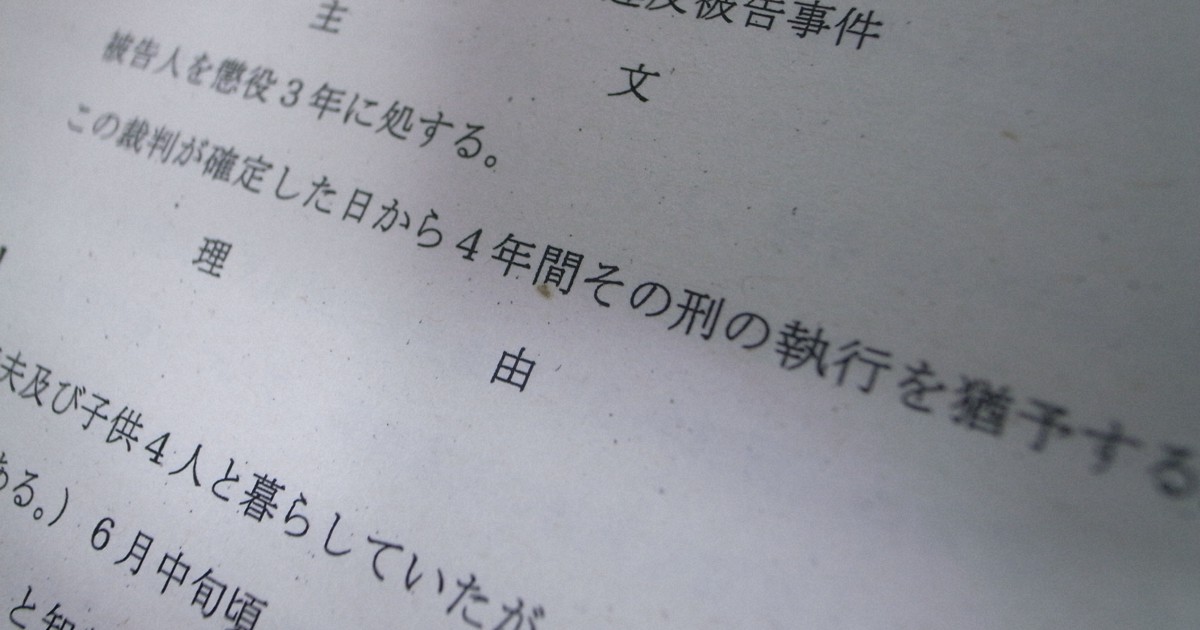 違反被告事件
主 文
被告人を懲役3年に処する。
この裁判が確定した日から4年間その刑の執行を猶予する
理 由
夫及び子供4人と暮らしていたが
ある。) 6月中旬頃
と知